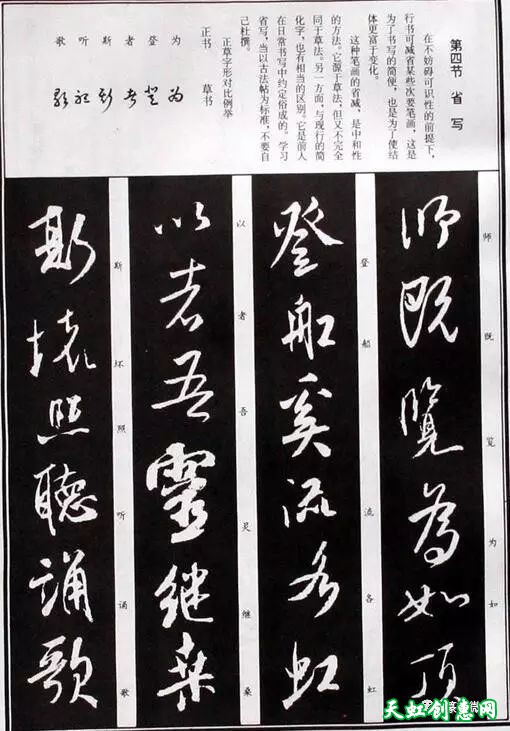 第四节 省写
在不妨碍可识性的前提下，
行书可减省某些次要笔画，这是
为了书写的简便，也是为了使结
体更富于变化。
这种笔画的省减，是中和性
的方法。它源于草法，但又不完全
同于草法。另一方面，与现行的简
化字，也有相当的区别。它是前人
在日常书写中约定俗成的。学习
省写，当以古法帖为标准，不要自
己杜撰。
正草字形对比例举
正书 为登者斯听歌
草书 为登者斯听歌
师既览为如
師既覽為如頂
登船流各虹
登船奚流各虹
以者吾灵继桑
以者吾靈繼桑
斯坏照听诵歌
斯壞照聽誦歌
天虹创意网